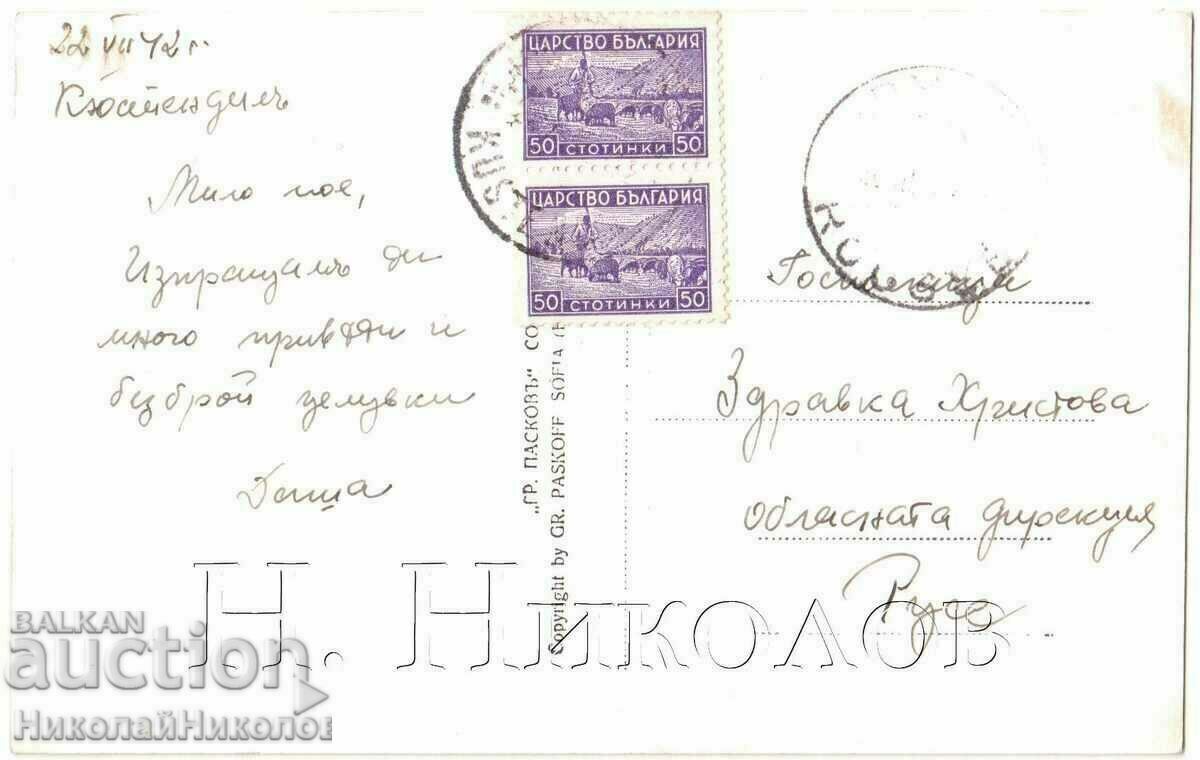 22 VII 42 г.
Кюстендилъ
Мило мое,
Изпращамъ ти
много привети и
безброй целувки
Даша
ЦАРСТВО БЪЛГАРИЯ
50 СТОТИНКИ 50
ЦАРСТВО БЪЛГАРИЯ
50 СТОТИНКИ 50
KUS
„ГР. ПАСКОВЪ“ СО
Copyright by GR. PASKOFF SOFIA
Госпожица
Здравка Христова
областната дирекция
Русе
Н. Николов
BALKAN
auction
НиколайНиколов